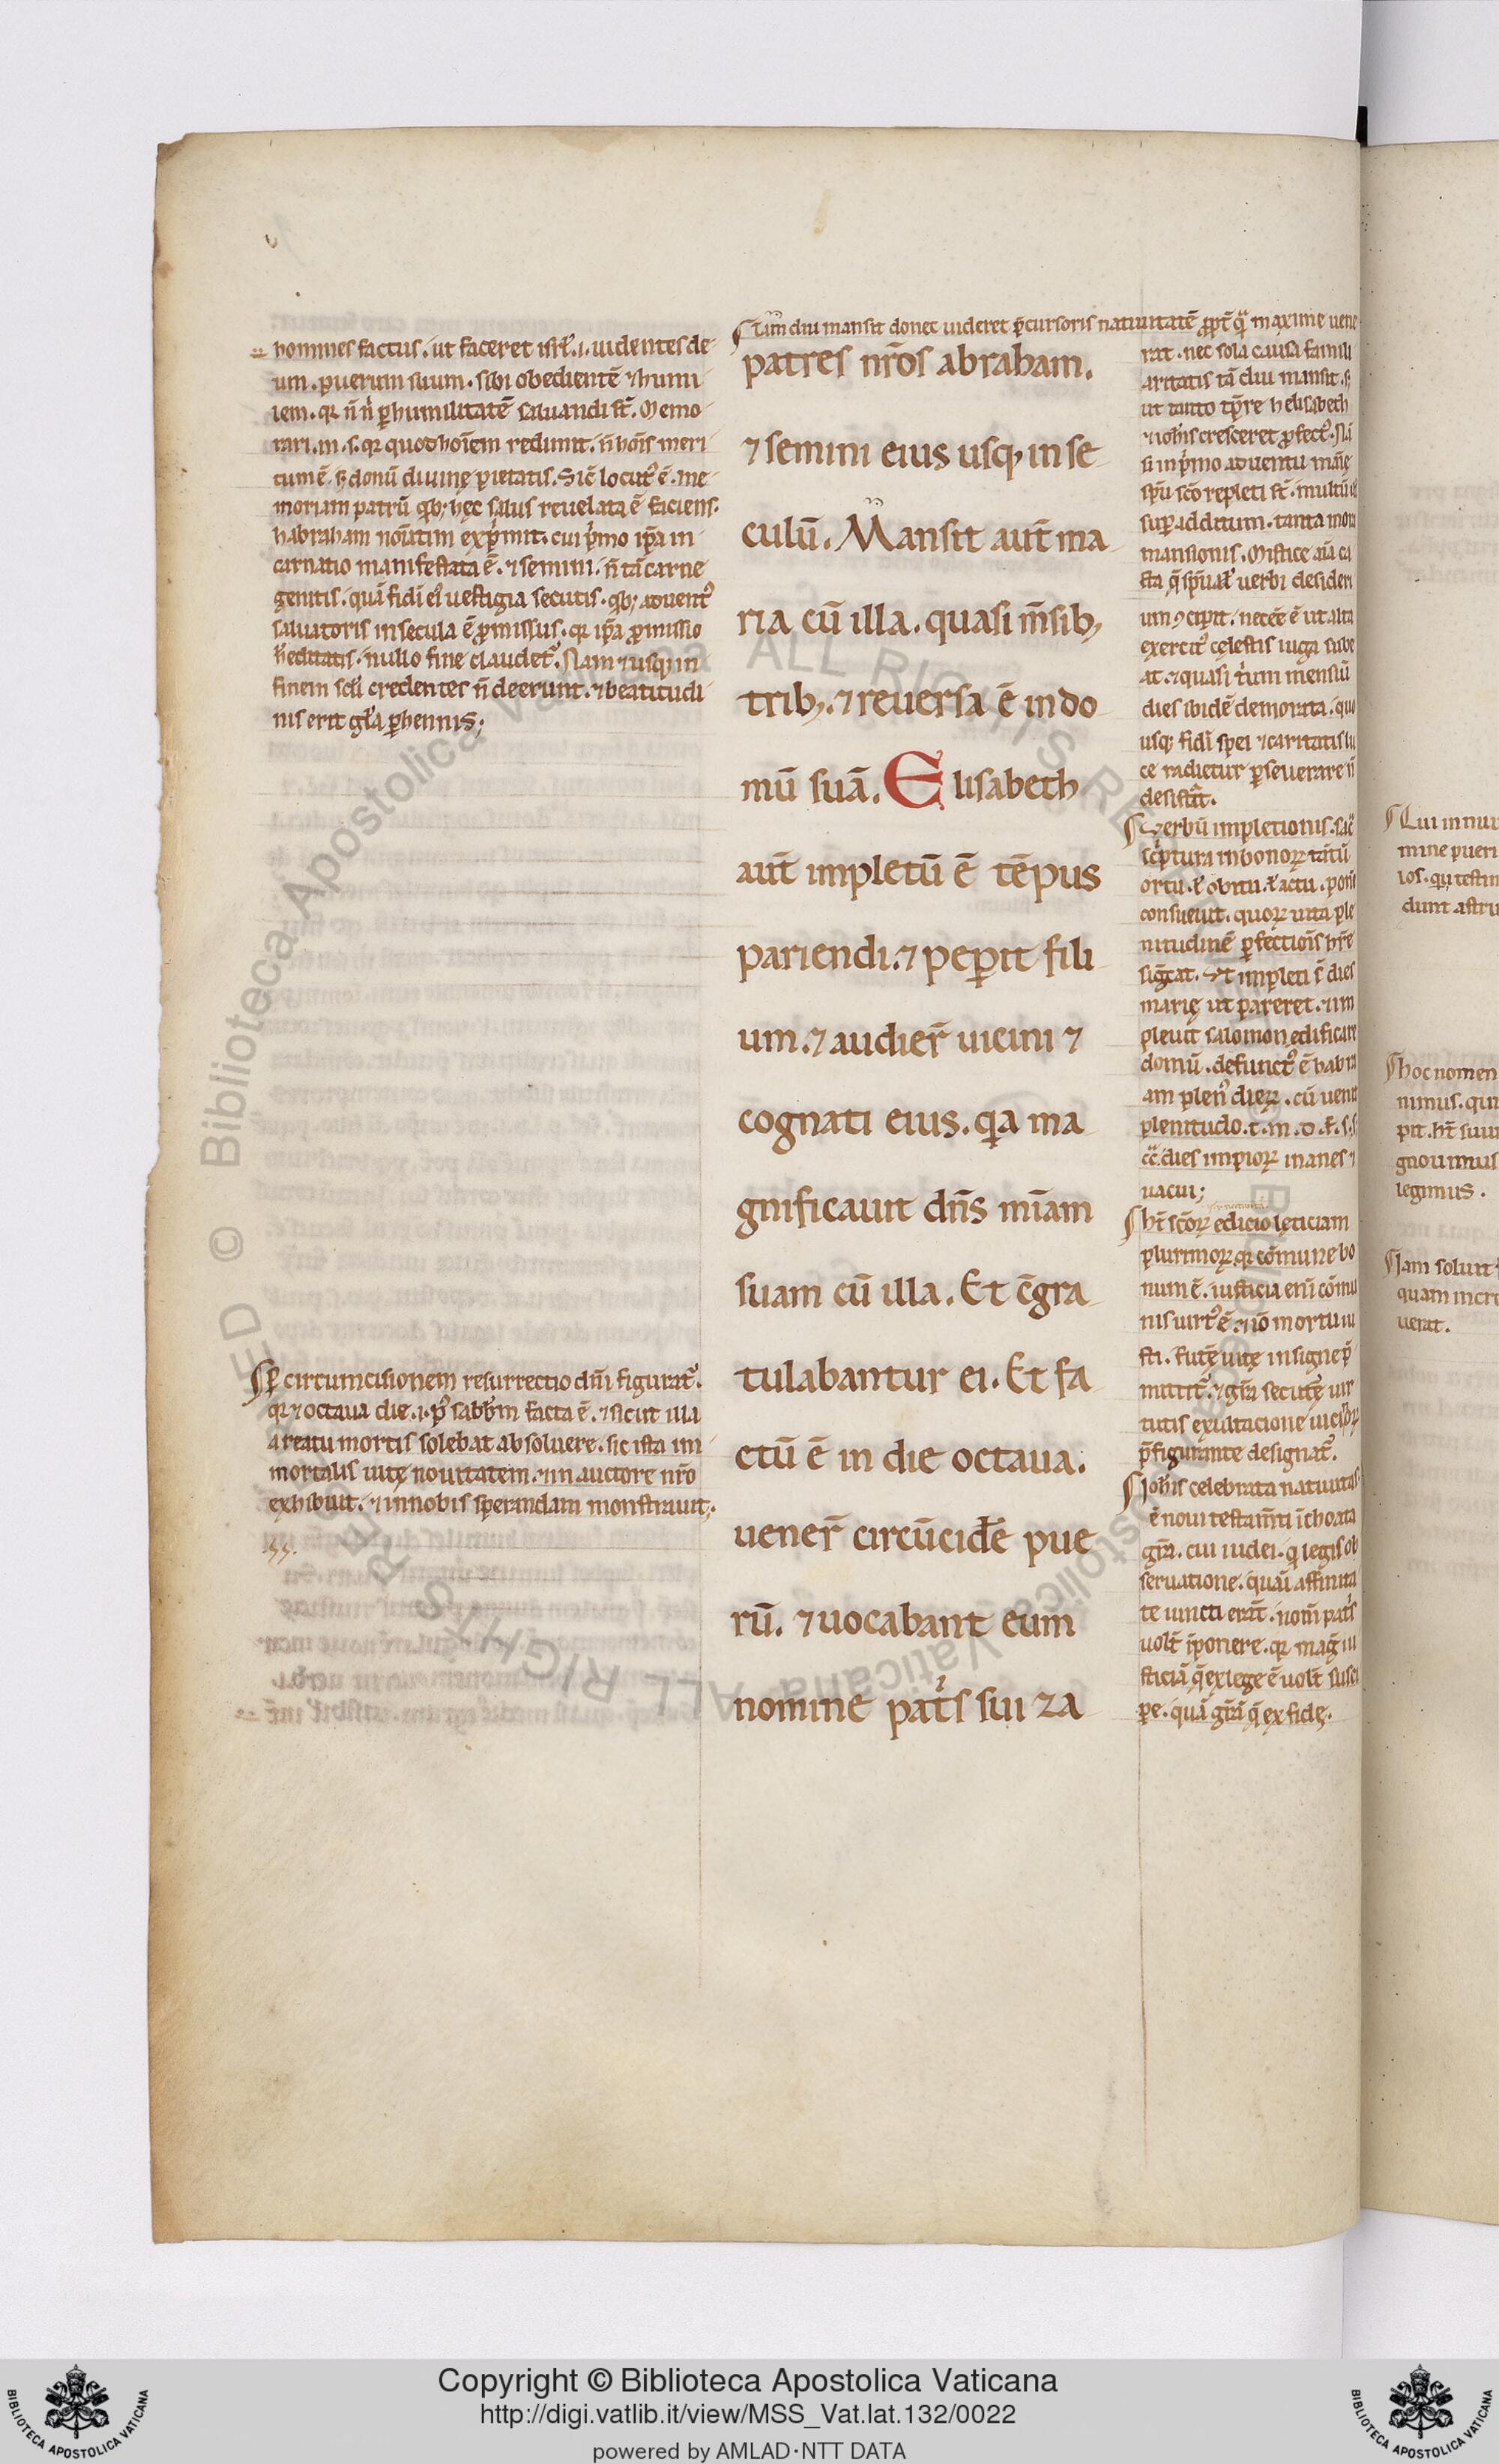 homines factus. ut faceret isrł. i. uidentes de
um. puerum suum. sibi obedientē ⁊ humi
lem. qr n̄ n̍ ꝑ humilitatē saluandi sт̄. Memo
rari. m. s. qr quod hoīem redimit. n̄ hoīs meri
tum ē. s; donū diuinę pietatis. Sic̄ locut᷒ ē. me
moriam patrū qb; hęc salus reuelata ē faciens.
habraham noūatim exp̍mit. cui p̍mo ip̄a in
carnatio manifestata ē. ⁊ semini. n̄ tā carne
genitis. quā fidi ei᷒ uestigia secutis. qb; aduent᷒
saluatoris in secula ē ꝓmissus. qr ip̄a ꝓmissio
h̄editatis. nullo fine claudet᷒. Nam ⁊ usq; in
finem sc̄li credentes n̄ deerunt. ⁊ beatitudi
nis erit gł̄a ꝑhennis;
Ꝑ circumcisionem resurrectio dn̄i figurat᷒.
qr ⁊ octaua die. i. p᷒ sabb̄m facta ē. ⁊ sicut illa
a reatu mortis solebat absoluere. sic ista im
mortalis uitę nouitatem. ⁊ in auctore nr̄o
exhibuit. ⁊ in nobis sperandam monstrauit;.
Tam diu mansit donec uideret p̄cursoris natiuitatē ꝓpt̄ qͣ maxime uene
patres nr̄os abraham.
⁊ semini eius usq; in se
culū. Mansit aut̄ ma
ria cū illa. quasi m̄sib;
trib;. ⁊ reuersa ē in do
mū suā. Elisabeth
aut̄ impletū ē tēpus
pariendi. ⁊ peꝑit fili
um. ⁊ audier̄ uicini ⁊
cognati eius. qͥa ma
gnificauit dn̄s mīam
suam cū illa. Et c̄gra
tulabantur ei. Et fa
ctū ē in die octaua.
uener̄ circūcidē pue
rū. ⁊ uocabant eum
nomine pat̍s sui za
rat. nec sola causa famili
aritatis tā diu mansit. s;
ut tanto tp̄re h elisabeth
⁊ ioh̄is cresceret ꝓfect᷒. Nā
si in p̍mo aduentu marię
sp̄u sc̄o repleti sт̄. multū
suꝑadditum. tanta mora
mansionis. Mistice aū ca
sta q̄ sp̄ualē uerbi desideri
um ꝯcipit. necēe ē ut alta
exercit᷒ celestis iuga sube
at. ⁊ quasi t̍um mensiū
dies ibidē demorata. quo
usq; fidi spei ⁊ caritatis lu
ce radietur ꝑseuerare n̄
desistāt.
Verbū impletionis. sac̄
sc̍ptura in bonoꝝ tātū
ortu. ł obitu. ł actu. poni
consueuit. quoꝝ uita ple
nitudinē ꝑfectiōis h̄re
sig̅cat. Vt impleti sт̄ dies
marię ut pareret. ⁊ im
pleuit salomon edificare
domū. defunct᷒ ē habra
am plen᷒ dieꝝ. cū uenit
plenitudo. t. m. d. f. s. s
cc̄. dies impioꝝ inanes ⁊
uacui;
Ht̄ sc̄oꝝ edicio leticiam
plurimoꝝ. qr cōmune bo
num ē. iusticia eni cōmu
nis uirt᷒ ē. ⁊ iō mortu iu
sti. futę uitę insigne p̄
mittit᷒. ⁊ gr̄a secutę uir
tutis exultacione uicinoꝝ
p̄figurante designat᷒.
Ioh̄is celebrata natiuitas
ē noui testam̄ti īchoata
gr̄a. cui iudei. q̍ legis ob
seruatione. quā affinita
te iuncti erāt. nom̄ pat̍s
uolт̄ īponere. qr mag̍ iu
sticiā q̄ ex lege ē uolт̄ susci
ꝑe. quā gr̄ā q̄ ex fide.
Qui in nu
mine pueri
ios. qui testim
dunt astru
Hoc nomen
nimus. qui
pit. ht̄ suu
gnouimus
legimus.
Iam soluit
quam incre
uerat.
Copyright © Biblioteca Apostolica Vaticana
http://digi.vatlib.it/view/MSS_Vat.lat.132/0022
powered by AMLAD·NTT DATA
BIBLIOTECA APOSTOLICA VATICANA
BIBLIOTECA APOSTOLICA VATICANA